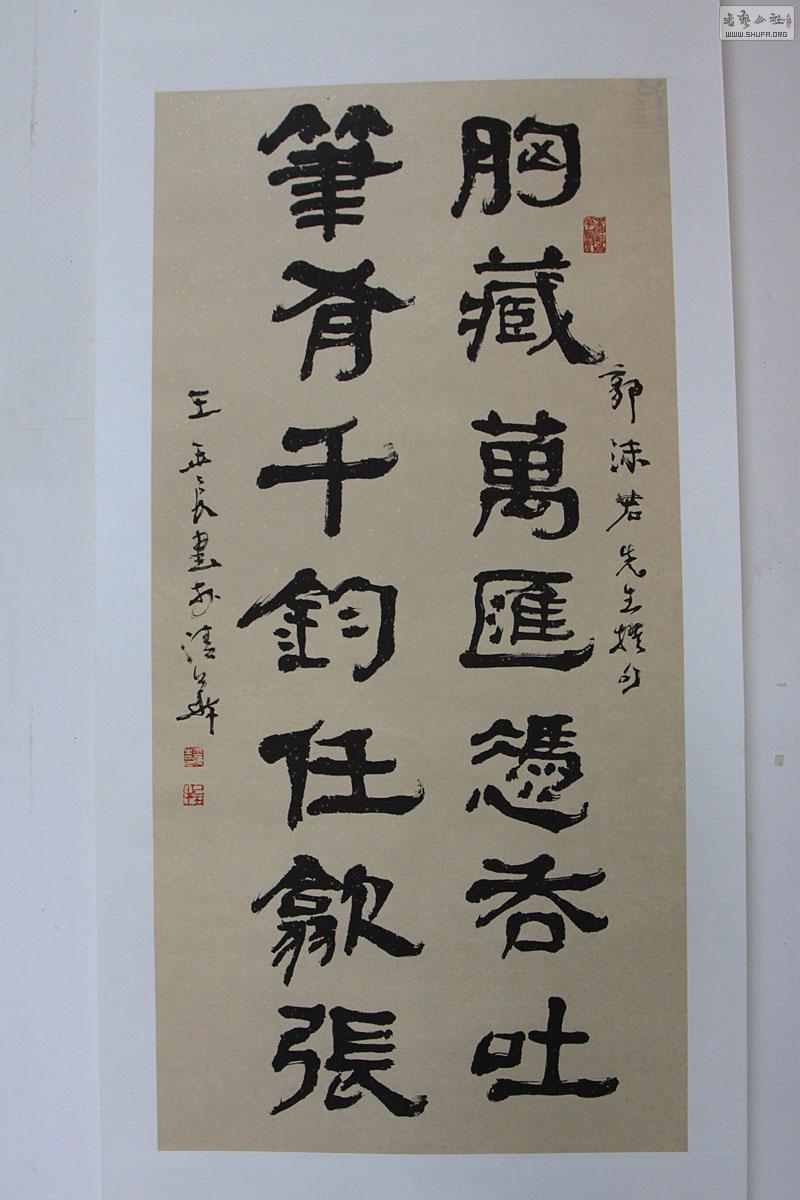 書藝公社
WWW.SHUFA.ORG
郭沫若先生撰句
胸藏萬匯憑吞吐
筆有千鈞任歙張
王 長書於清華